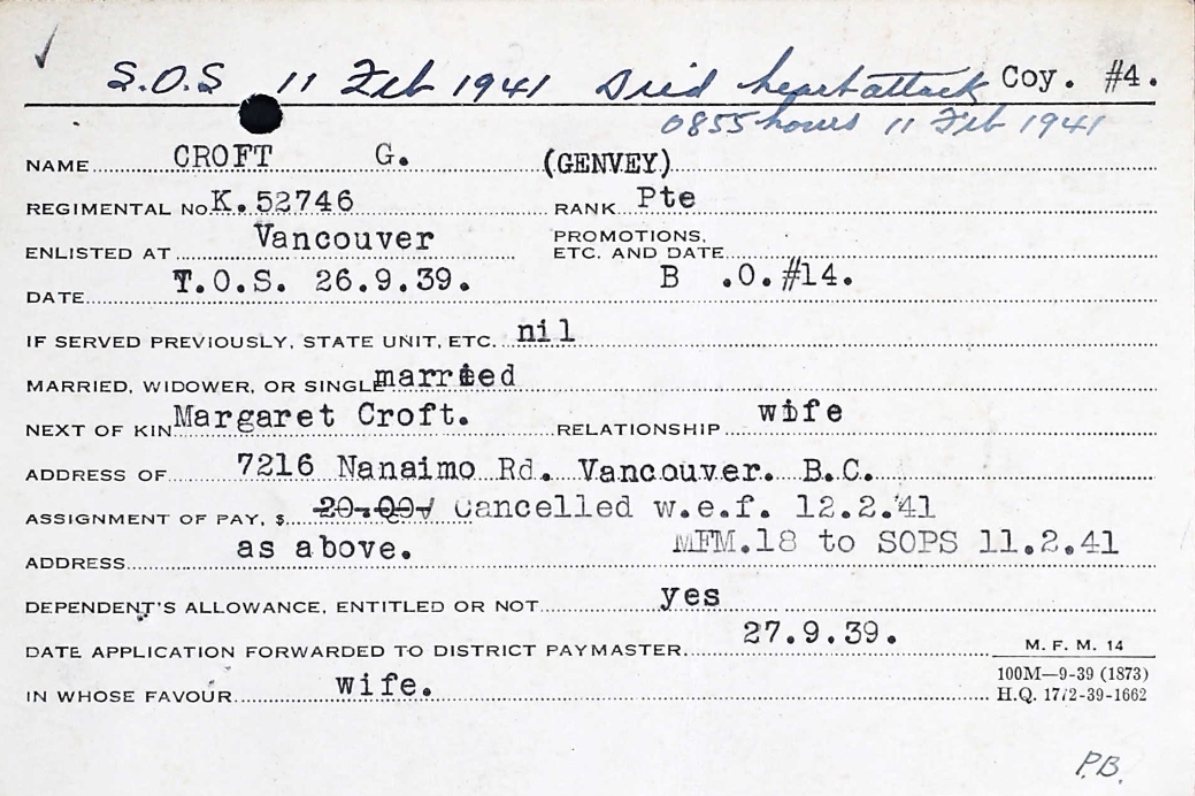 S.O.S 11 Feb 1941 Died heart attack Coy. #4.
0855 hours 11 Feb 1941
NAME CROFT G. (GENVEY)
REGIMENTAL No K.52746 RANK Pte
ENLISTED AT Vancouver PROMOTIONS, ETC. AND DATE
DATE T.O.S. 26.9.39. B .O.#14.
IF SERVED PREVIOUSLY, STATE UNIT, ETC. nil
MARRIED, WIDOWER, OR SINGLE married
NEXT OF KIN Margaret Croft. RELATIONSHIP wife
ADDRESS OF 7216 Nanaimo Rd. Vancouver. B.C.
ASSIGNMENT OF PAY, $ 20.00 Cancelled w.e.f. 12.2.41
ADDRESS as above. MFM.18 to SOPS 11.2.41
DEPENDENT'S ALLOWANCE, ENTITLED OR NOT yes
DATE APPLICATION FORWARDED TO DISTRICT PAYMASTER 27.9.39.
M. F. M. 14
IN WHOSE FAVOUR wife.
100M—9-39 (1873)
H.Q. 1772-39-1662
P.B.